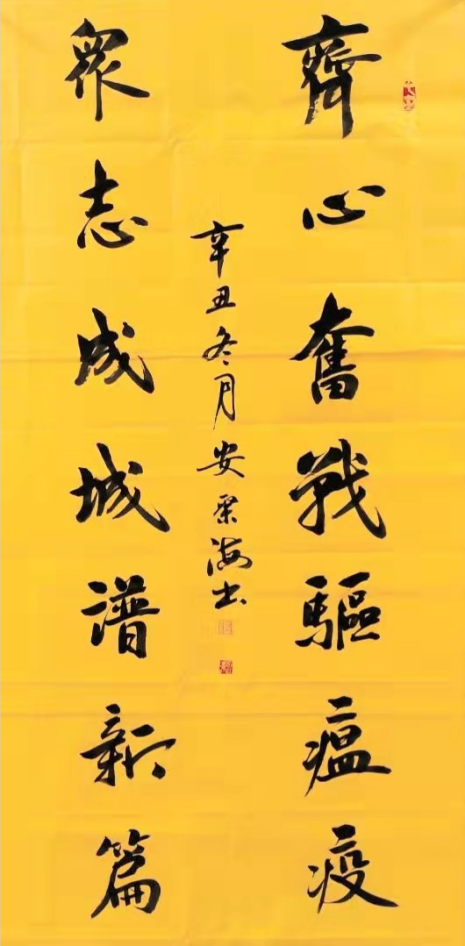 齊心奮戰驅瘟疫
衆志成城譜新篇
辛丑冬月安荣海书